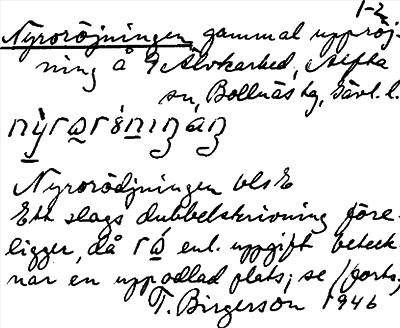 1-2
Nyroröjningen, gammal uppröj-
ning å Älvkarhed, Alfta
sn, Bollnäs tg, Gävl. l.
Nyrorödjningen bls E
Ett slags dubbelskrivning före-
ligger, då enl. uppgift beteck-
nar en uppodlad plats; se /forts,
T. Birgerson 1946